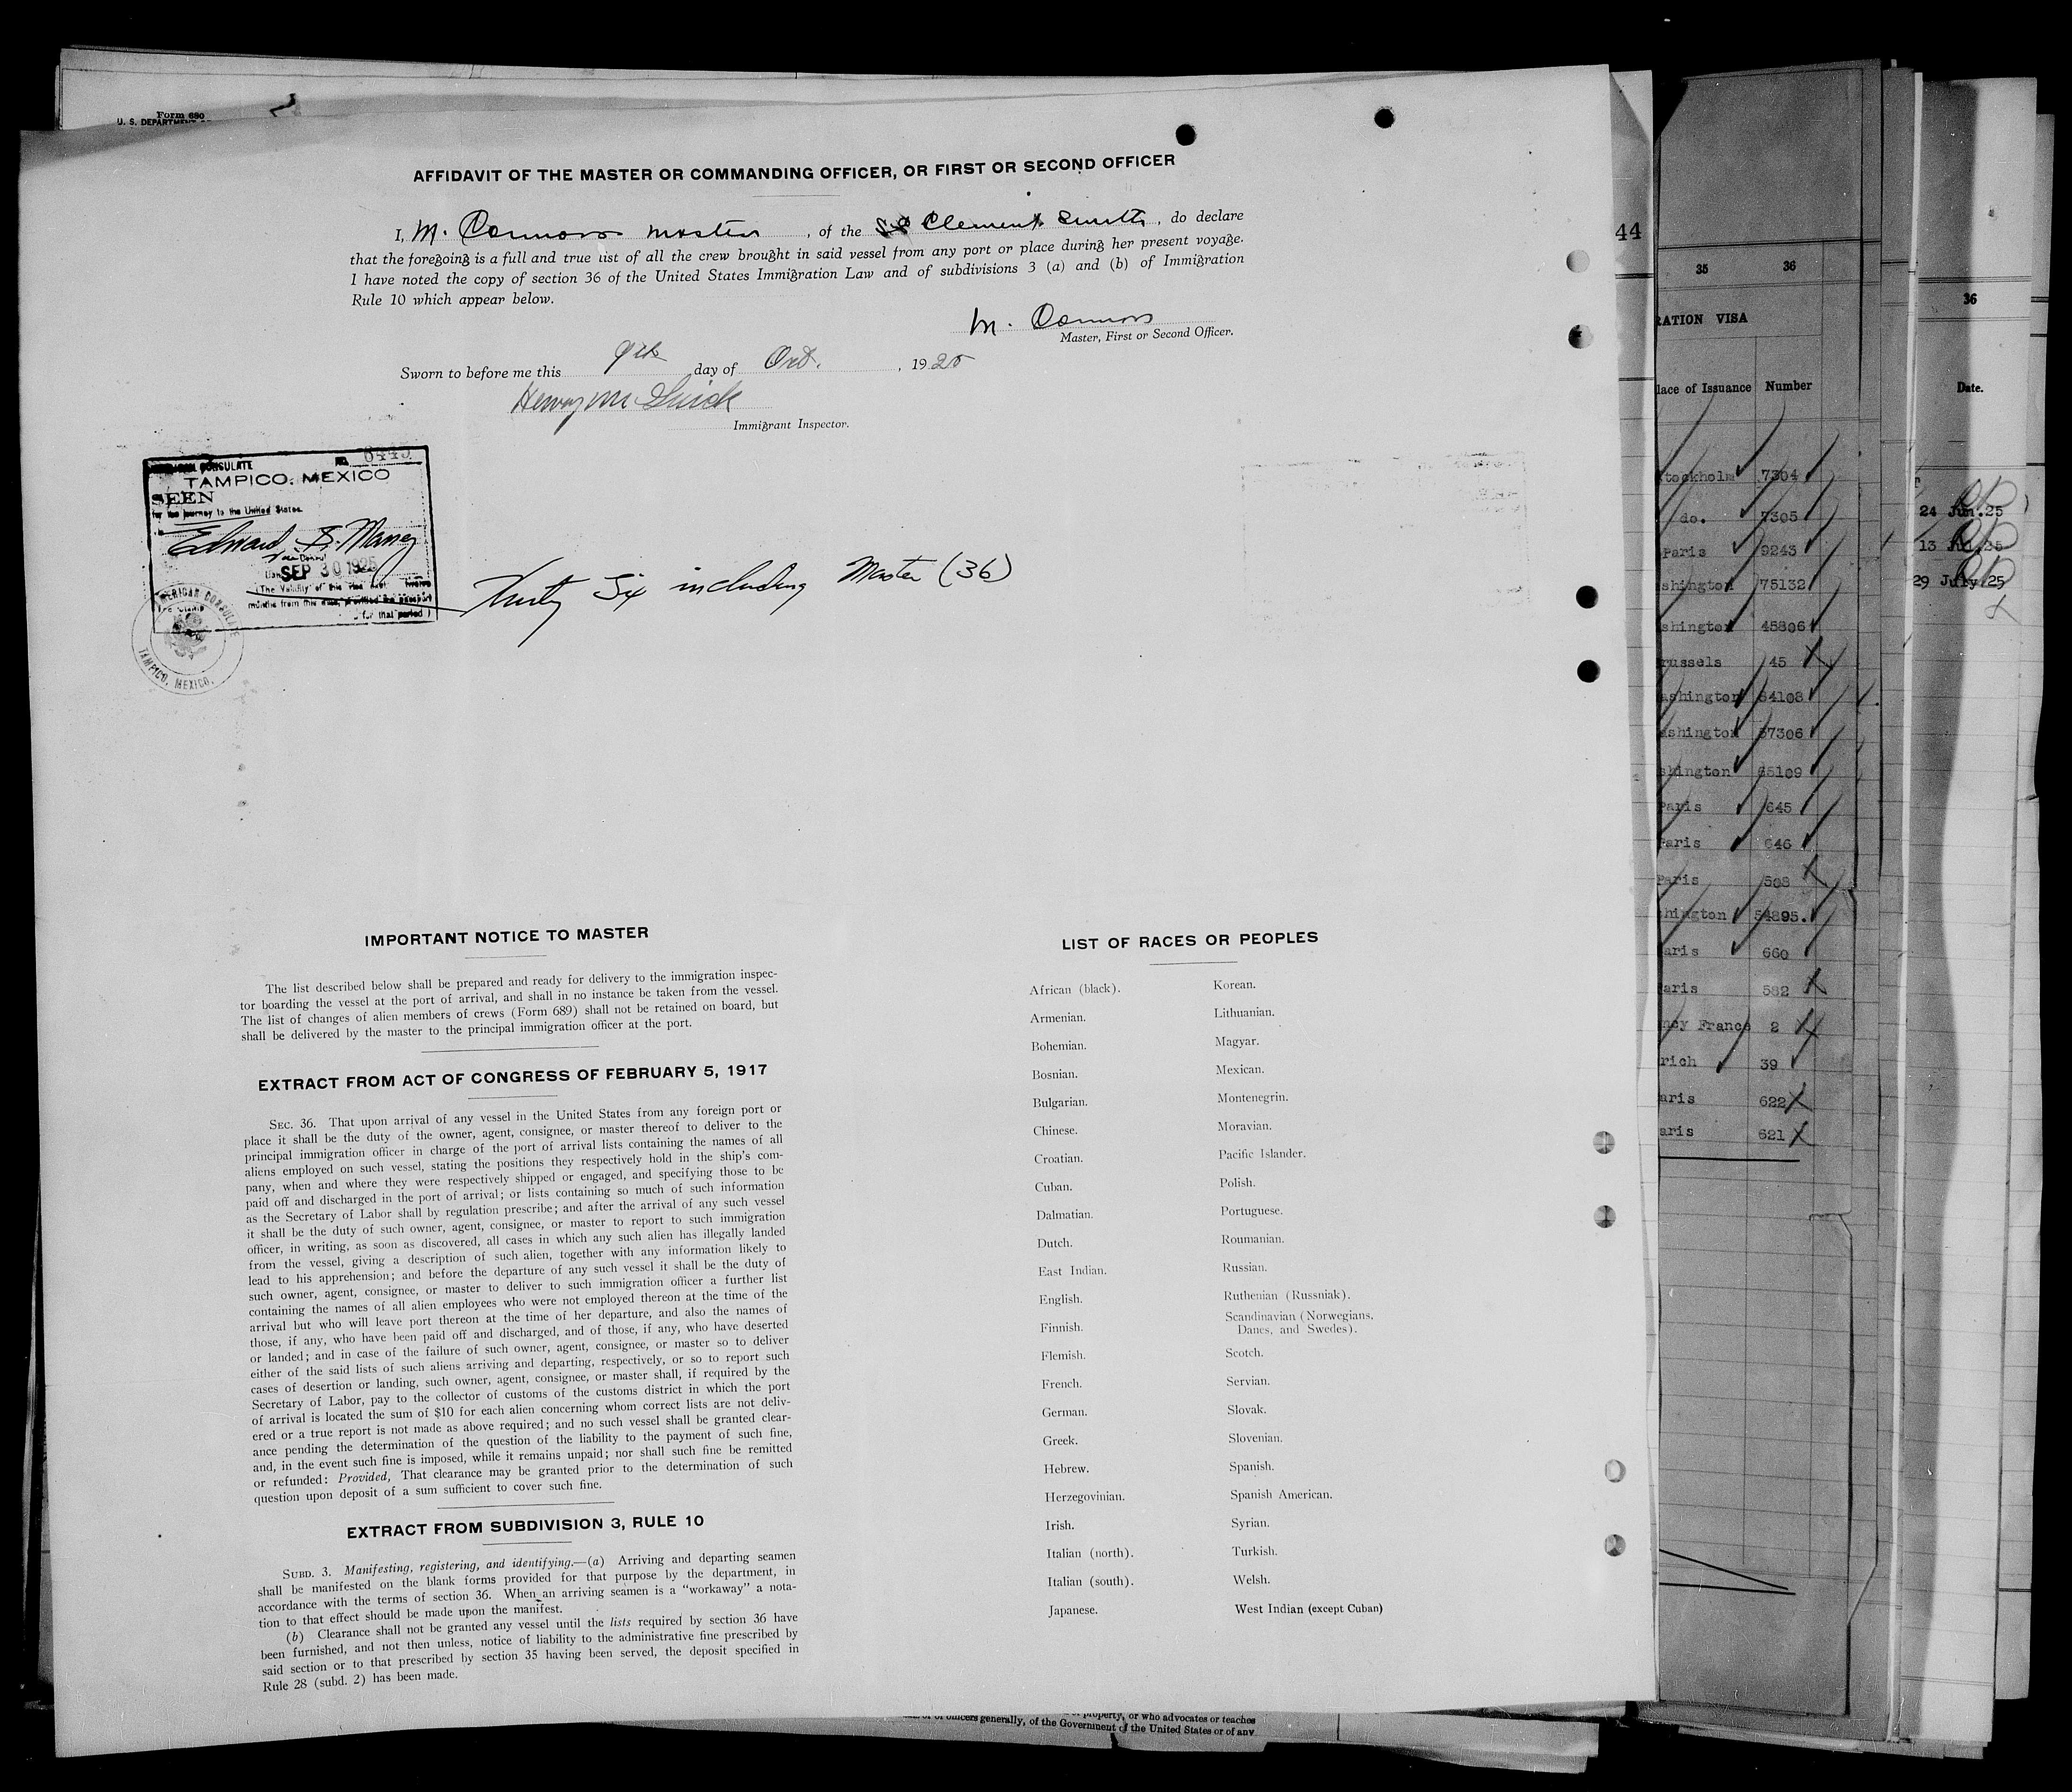 Form 680
U. S. DEPARTMENT OF
AFFIDAVIT OF THE MASTER OR COMMANDING OFFICER, OR FIRST OR SECOND OFFICER
I, M. Connors master , of the SS Clement Smith , do declare
that the foregoing is a full and true list of all the crew brought in said vessel from any port or place during her present voyage.
I have noted the copy of section 36 of the United States Immigration Law and of subdivisions 3 (a) and (b) of Immigration
Rule 10 which appear below.
M. Connors
Master, First or Second Officer.
Sworn to before me this 9th day of Oct. , 1925
Immigrant Inspector.
AMERICAN CONSULATE NO. 6445
TAMPICO, MEXICO
SEEN
for the journey to the United States.
Edward S. Maney
Vice Consul
SEP 30 1925
(The Validity of this visa expires twelve
months from this date, provided the passport
for that period)
AMERICAN CONSULATE
TAMPICO, MEXICO.
Thirty Six including Master (36)
IMPORTANT NOTICE TO MASTER
The list described below shall be prepared and ready for delivery to the immigration inspec-
tor boarding the vessel at the port of arrival, and shall in no instance be taken from the vessel.
The list of changes of alien members of crews (Form 689) shall not be retained on board, but
shall be delivered by the master to the principal immigration officer at the port.
EXTRACT FROM ACT OF CONGRESS OF FEBRUARY 5, 1917
SEC. 36. That upon arrival of any vessel in the United States from any foreign port or
place it shall be the duty of the owner, agent, consignee, or master thereof to deliver to the
principal immigration officer in charge of the port of arrival lists containing the names of all
aliens employed on such vessel, stating the positions they respectively hold in the ship's com-
pany, when and where they were respectively shipped or engaged, and specifying those to be
paid off and discharged in the port of arrival; or lists containing so much of such information
as the Secretary of Labor shall by regulation prescribe; and after the arrival of any such vessel
it shall be the duty of such owner, agent, consignee, or master to report to such immigration
officer, in writing, as soon as discovered, all cases in which any such alien has illegally landed
from the vessel, giving a description of such alien, together with any information likely to
lead to his apprehension; and before the departure of any such vessel it shall be the duty of
such owner, agent, consignee, or master to deliver to such immigration officer a further list
containing the names of all alien employees who were not employed thereon at the time of the
arrival but who will leave port thereon at the time of her departure, and also the names of
those, if any, who have been paid off and discharged, and of those, if any, who have deserted
or landed; and in case of the failure of such owner, agent, consignee, or master so to deliver
either of the said lists of such aliens arriving and departing, respectively, or so to report such
cases of desertion or landing, such owner, agent, consignee, or master shall, if required by the
Secretary of Labor, pay to the collector of customs of the customs district in which the port
of arrival is located the sum of $10 for each alien concerning whom correct lists are not deliv-
ered or a true report is not made as above required; and no such vessel shall be granted clear-
ance pending the determination of the question of the liability to the payment of such fine,
and, in the event such fine is imposed, while it remains unpaid; nor shall such fine be remitted
or refunded: Provided, That clearance may be granted prior to the determination of such
question upon deposit of a sum sufficient to cover such fine.
EXTRACT FROM SUBDIVISION 3, RULE 10
SUBD. 3. Manifesting, registering, and identifying.—(a) Arriving and departing seamen
shall be manifested on the blank forms provided for that purpose by the department, in
accordance with the terms of section 36. When an arriving seamen is a "workaway" a nota-
tion to that effect should be made upon the manifest.
(b) Clearance shall not be granted any vessel until the lists required by section 36 have
been furnished, and not then unless, notice of liability to the administrative fine prescribed by
said section or to that prescribed by section 35 having been served, the deposit specified in
Rule 28 (subd. 2) has been made.
LIST OF RACES OR PEOPLES
African (black).
Armenian.
Bohemian.
Bosnian.
Bulgarian.
Chinese.
Croatian.
Cuban.
Dalmatian.
Dutch.
East Indian.
English.
Finnish.
Flemish.
French.
German.
Greek.
Hebrew.
Herzegovinian.
Irish.
Italian (north).
Italian (south).
Japanese.
Korean.
Lithuanian.
Magyar.
Mexican.
Montenegrin.
Moravian.
Pacific Islander.
Polish.
Portuguese.
Roumanian.
Russian.
Ruthenian (Russniak).
Scandinavian (Norwegians,
Danes, and Swedes).
Scotch.
Servian.
Slovak.
Slovenian.
Spanish.
Spanish American.
Syrian.
Turkish.
Welsh.
West Indian (except Cuban)
property, or who advocates or teaches
of officers generally, of the Government of the United States or of any
44
35 36
RATION VISA
lace of Issuance Number
tockholm 7304
do. 7305
Paris 9243
shington 75132
shington 45806
russels 45
ashington 64108
ashington 67306
shington 65109
Paris 645
Paris 646
Paris 508
hington 54895.
aris 660
aris 582
ncy France 2
rich 39
aris 622
aris 621
36
Date.
24 Jun.25
13 Jul.25
29 July.25